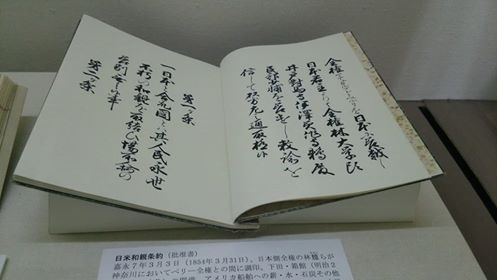 全権 日本に差越し
日本君主よりハ全権林大学頭
井戸対馬守伊澤美作守鵜殿
民部少輔を差遣し勅諭を
信して双方左之通取極候
第一ヶ條
一日本と合衆国とハ其人民永世
不朽の和親を取結ひ場所
差別無之事
第二ヶ條
日米和親条約（批准書）
嘉永７年３月３日（1854年３月31日）、日本側全権の林 らが
神奈川においてペリー全権との間に調印。下田・箱館（明治２
開港、アメリカ船舶への薪・水・石炭その他